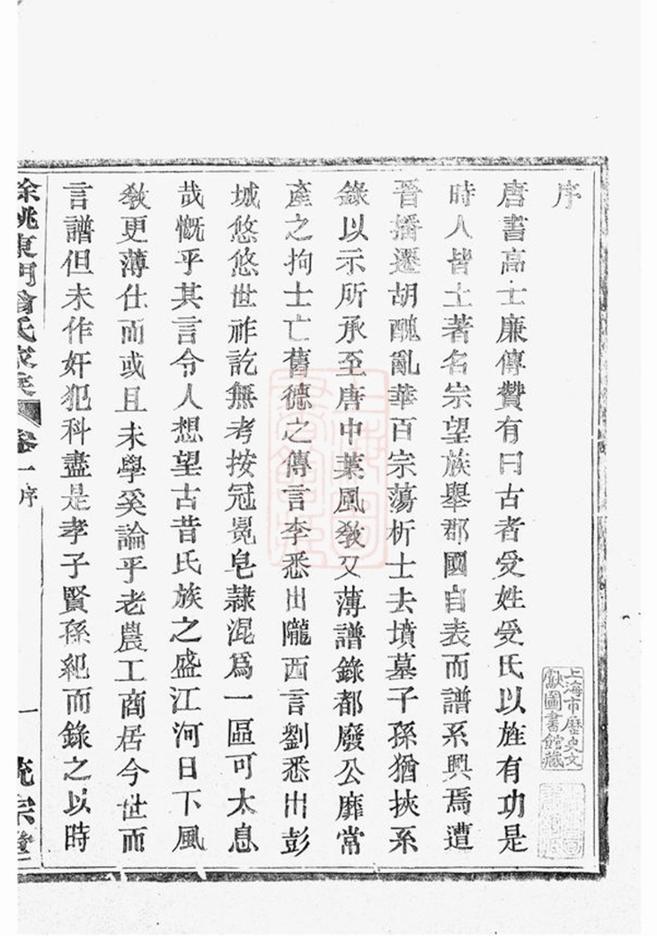 序
唐書高士廉傳贊有曰古者受姓受氏以旌有功是
時人皆土著名宗望族舉郡國自表而譜系興焉遭
晉播遷胡醜亂華百宗蕩析士去墳墓子孫猶挾系
錄以示所承至唐中葉風敎又薄譜錄都廢公靡常
產之拘士亡舊德之傳言李悉出隴西言劉悉出彭
城悠悠世祚訖無考按冠冕皂隸混爲一區可太息
哉慨乎其言令人想望古昔氏族之盛江河日下風
敎更薄仕而或且未學奚論乎老農工商居今世而
言譜但未作奸犯科盡是孝子賢孫紀而錄之以時
餘姚東門 氏家
卷一序
一
上海市歷史文
獻圖書館藏